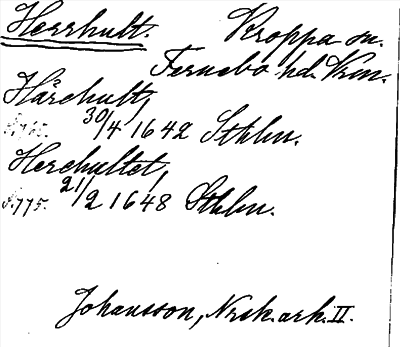 Herrhult. Kroppa sn.
Fernebo hd. Vrm.
Härehult,
30/4 1642 Sthlm.
Herehultet,
s. 775. 21/2 1648 Sthlm.
Johansson, Nrsk. ark. II.